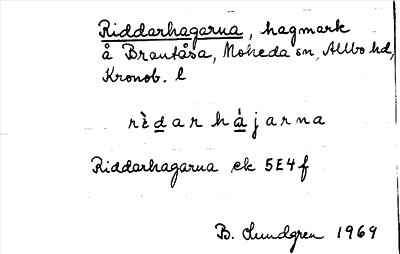 Riddarhagarna, hagmark
å Brantåsa, Moheda sn, Allbo hd,
Kronob. l
rìdarhájarna
Riddarhagarna ek 5E4f
B. Lundgren 1969